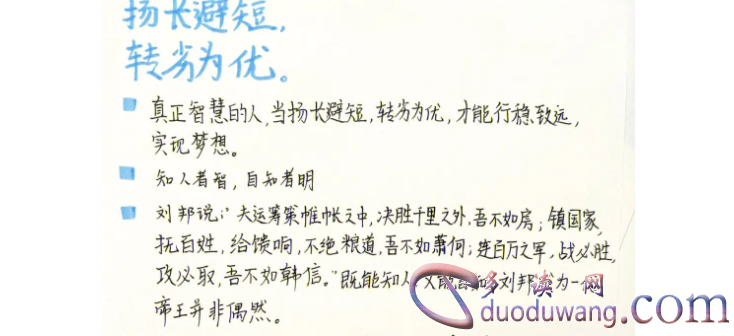 扬长避短,
转劣为优。
真正智慧的人,当扬长避短,转劣为优,才能行稳致远,
实现梦想。
知人者智,自知者明
刘邦说:"夫运筹策帷帐之中,决胜千里之外,吾不如房;镇国家,
抚百姓,给馈响,不绝粮道,吾不如萧何;连百万之军,战必胜,
攻必取,吾不如韩信。"既能知人,又能自知,刘邦成为一
帝王并非偶然。
多读网
duoduwang.com